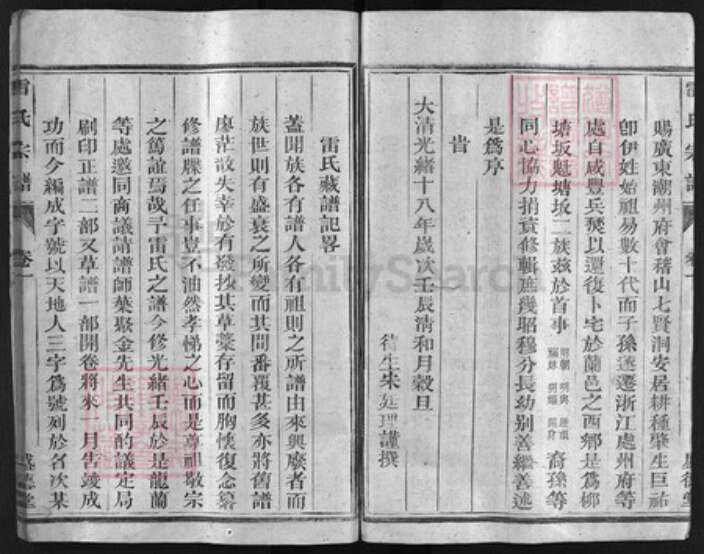 賜廣東潮州府會稽山七賢洞安居耕種肇生巨祐
卽伊姓始祖易數十代而子孫遂遷浙江處州府等
處自咸豐兵燹以還復卜宅於蘭邑之西鄉是爲柳
塘坂魁塘坂二族茲於首事 裔孫等
同心協力捐資修輯庶幾昭穆分長幼别善繼善述
是爲序
旹
大清光緒十八年歲次壬辰清和月榖旦
待生朱廷理謹撰
雷氏宗譜 卷一
雷氏藏譜記畧
蓋聞族各有譜人各有祖則之所譜由來興廢者而
族世則有盛衰之所變而其間番覆甚多亦將舊譜
廖茫散失幸於有發拔其草藁存留而胸懐復念纂
修譜牒之任事豈不油然孝悌之心而是尊祖敬宗
之篤誼焉哉予雷氏之譜今修光緒壬辰於是龍蘭
等處邀同商議請譜師葉聚金先生共同酌議定局
刷印正譜二部又草譜一部開卷將來 月告竣成
功而今編成字號以天地人三字爲號列於名次某
雷氏宗譜 卷一
盛德堂
FamilySearch